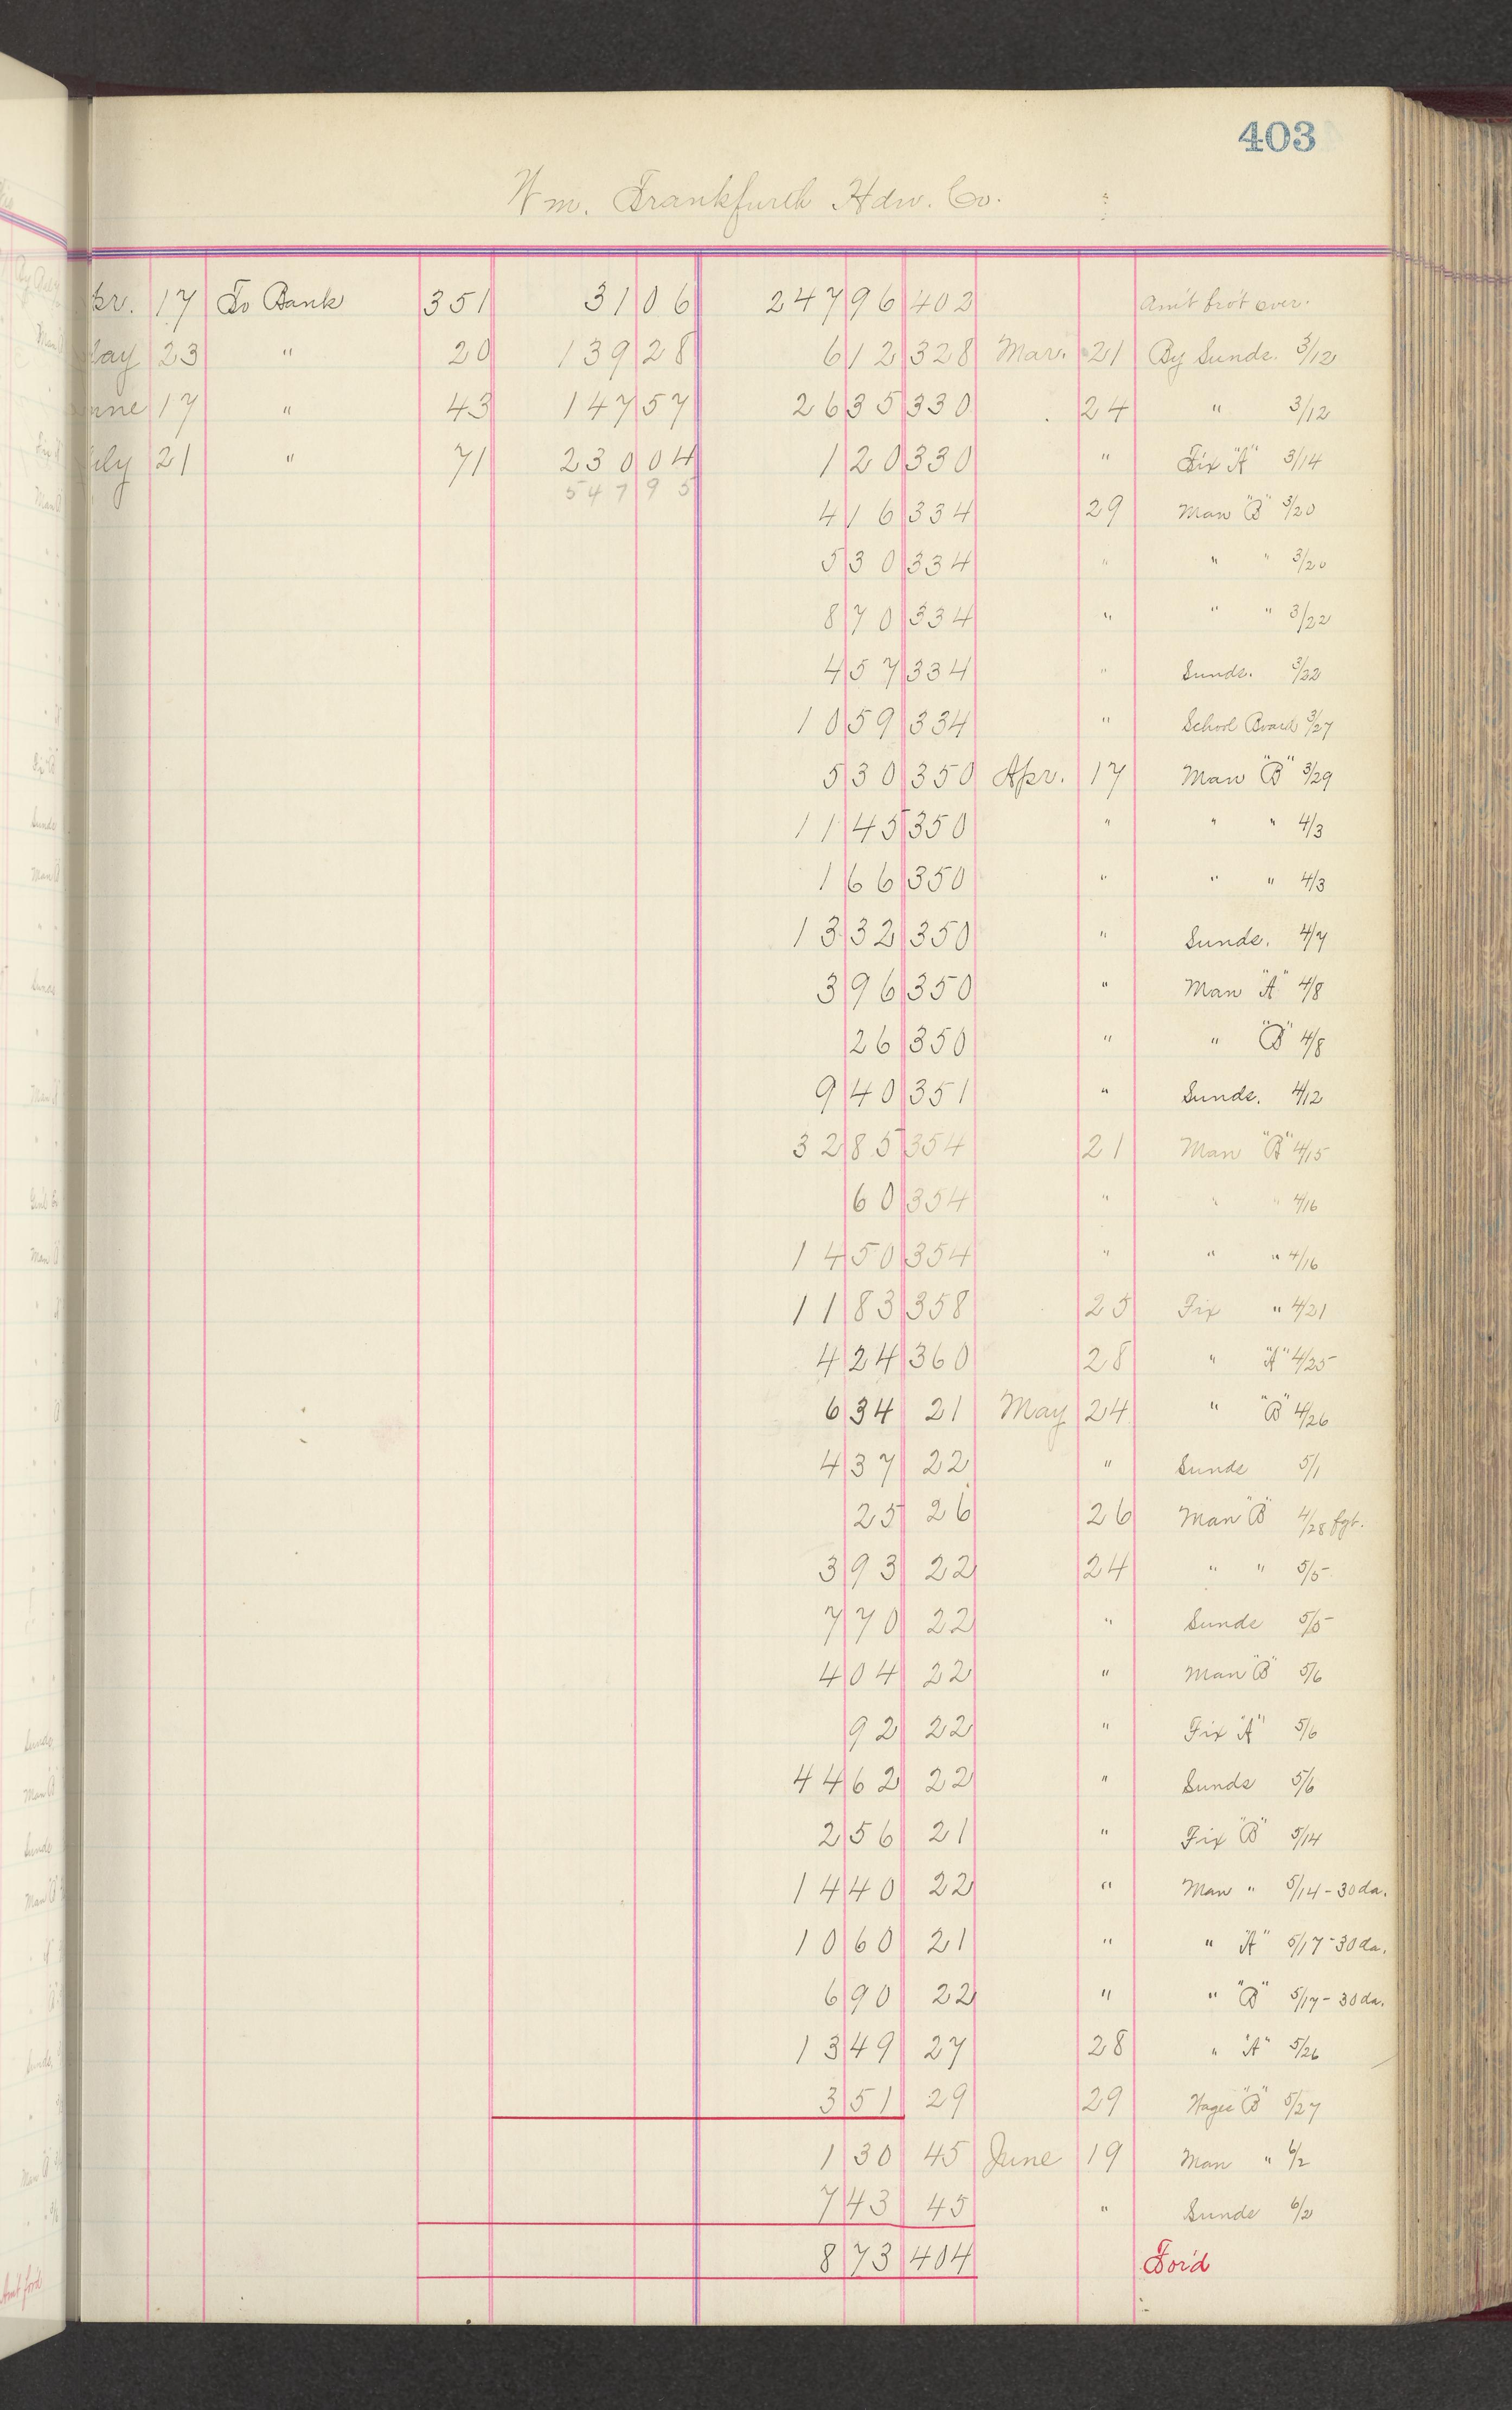 403
Wm. Frankfurth Hdw. Co.
pr. 17 To Bank 351 31 06 247 96 402 Am't bro't over.
ay 23 " 20 139 28 6 12 328 Mar. 21 By Sunds. 3/12
une 17 " 43 147 57 26 35 330 24 " 3/12
uly 21 " 71 230 04 1 20 330 " Fix "A" 3/14
547 95
4 16 334 29 Man "B" 3/20
5 30 334 " " " 3/20
8 70 334 " " " 3/22
4 57 334 " Sunds. 3/22
10 59 334 " School Board 3/27
5 30 350 Apr. 17 Man "B" 3/29
11 45 350 " " " 4/3
1 66 350 " " " 4/3
13 32 350 " Sunds. 4/7
3 96 350 " Man "A" 4/8
26 350 " " "B" 4/8
9 40 351 " Sunds. 4/12
32 85 354 21 Man "B" 4/15
60 354 " " " 4/16
14 50 354 " " " 4/16
11 83 358 25 Fix " 4/21
4 24 360 28 " "A" 4/25
6 34 21 May 24 " "B" 4/26
4 37 22 " Sunds 5/1
25 26 26 Man "B" 4/28 fgt.
3 93 22 24 " " 5/5
7 70 22 " Sunds 5/5
4 04 22 " Man "B" 5/6
92 22 " Fix "A" 5/6
44 62 22 " Sunds 5/6
2 56 21 " Fix "B" 5/14
14 40 22 " Man " 5/14 - 30 da.
10 60 21 " " "A" 5/17 - 30 da.
6 90 22 " " "B" 5/17 - 30 da.
13 49 27 28 " "A" 5/26
3 51 29 29 "B" 5/27
1 30 45 June 19 Man " 6/2
7 43 45 " Sunds 6/2
8 73 404 For'd